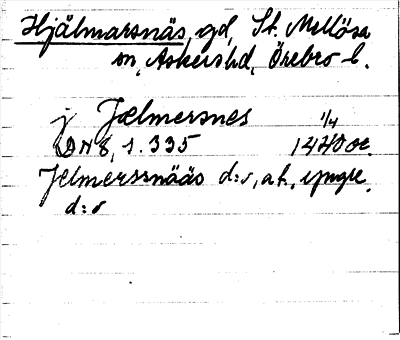 Hjälmarsnäs, gd, St. Mellösa
sn, Askers hd, Örebro l.
j Jælmersnes 1/4
DN 8, s. 335 1440 or.
Jelmerssnääs d:o, a.h., yngre
d:o